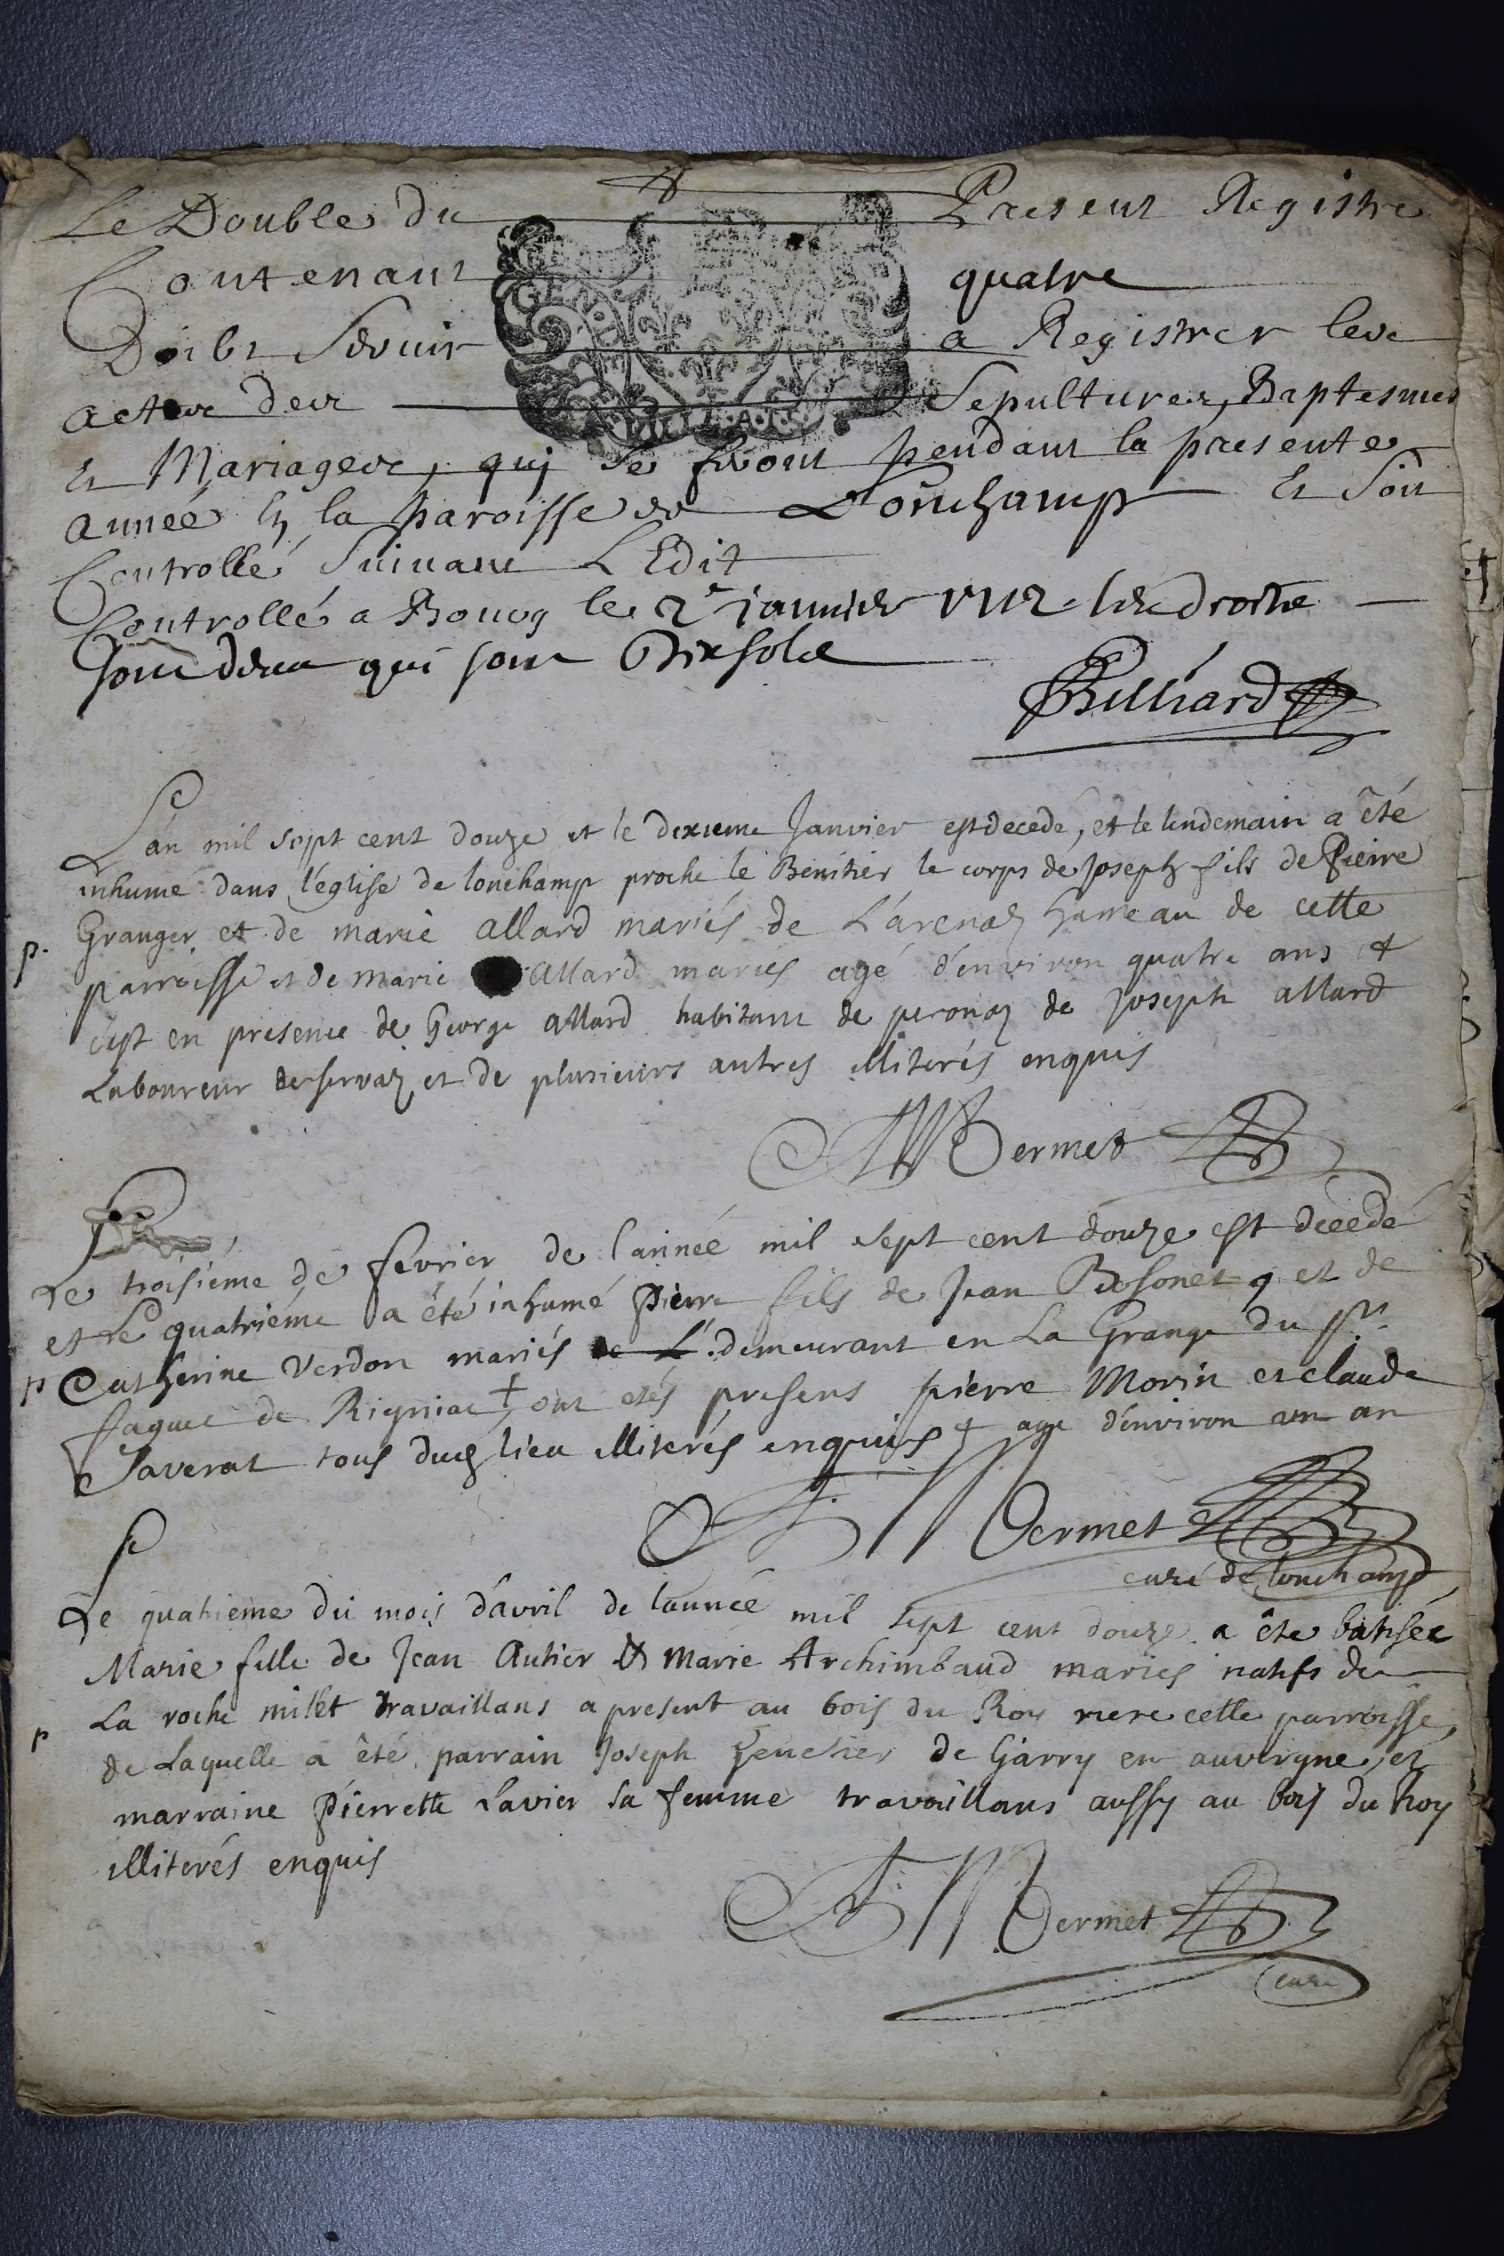 Le Double du Present Registre
Contenant quatre
Doibt Servir a Registrer les
actes des Sepultures, Baptesmes
Et Mariages, qui se feront pendant la presente
année En la paroisse de Lonchamp Et Soit
Controllé Suivant L'Edit
Controllé a Bourg le 2e janvier 1712 les droits
sont deux qui sont Dix sols
Billiard
L'an mil sept cent douze et le dixieme Janvier est decedé, et le lendemain a êté
inhumé dans l'église de lonchamp proche le Benitier le corps de Joseph fils de Pierre
Granger et de marie allard mariés de L'arenaz hameau de cette
p. parroisse et de marie allard mariés agé d'environ quatre ans et
c'est en presence de George allard habitant de peronaz de joseph allard
Laboureur de servaz et de plusieurs autres illiterés enquis
Vermet
Le troisiéme de fevrier de l'année mil sept cent douze est decedé
et le quatriéme a êté inhumé pierre fils de Jean Bosonet et de
p Catherine Verdon mariés de L' demeurant en La Grange du Sr.
Jaques de Rigniac + ont etés presens pierre Morin et claude
Javerat tous dud lieu illiterés enquis + agé d'environ un an
Vermet
curé de lonchamp
Le quatrieme du mois d'avril de l'année mil sept cent douze a été batisée
Marie fille de Jean Autier et Marie Archimbaud mariés natifs de
p La roche millet travaillans a present au bois du Roy riere cette parroisse,
de Laquelle a êté parrain Joseph Genestier de Giarry en auvergne, et
marraine Pierrette Lavier sa femme travaillans aussy au bois du Roy
illiterés enquis
Vermet
curé